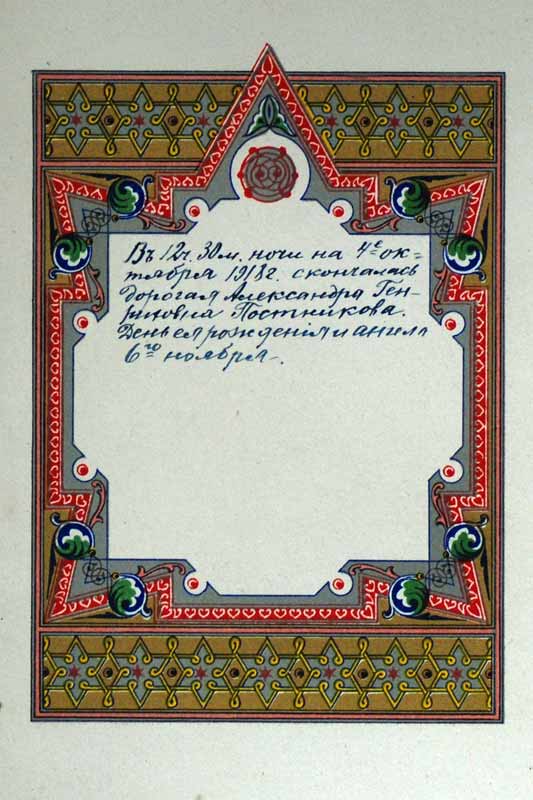 Въ 12ч. 30м. ночи на 4е ок=
тября 1918г. скончалась
дорогая Александра Ген-
риховна Постникова.
День ея рожденія и ангела
6го ноября.